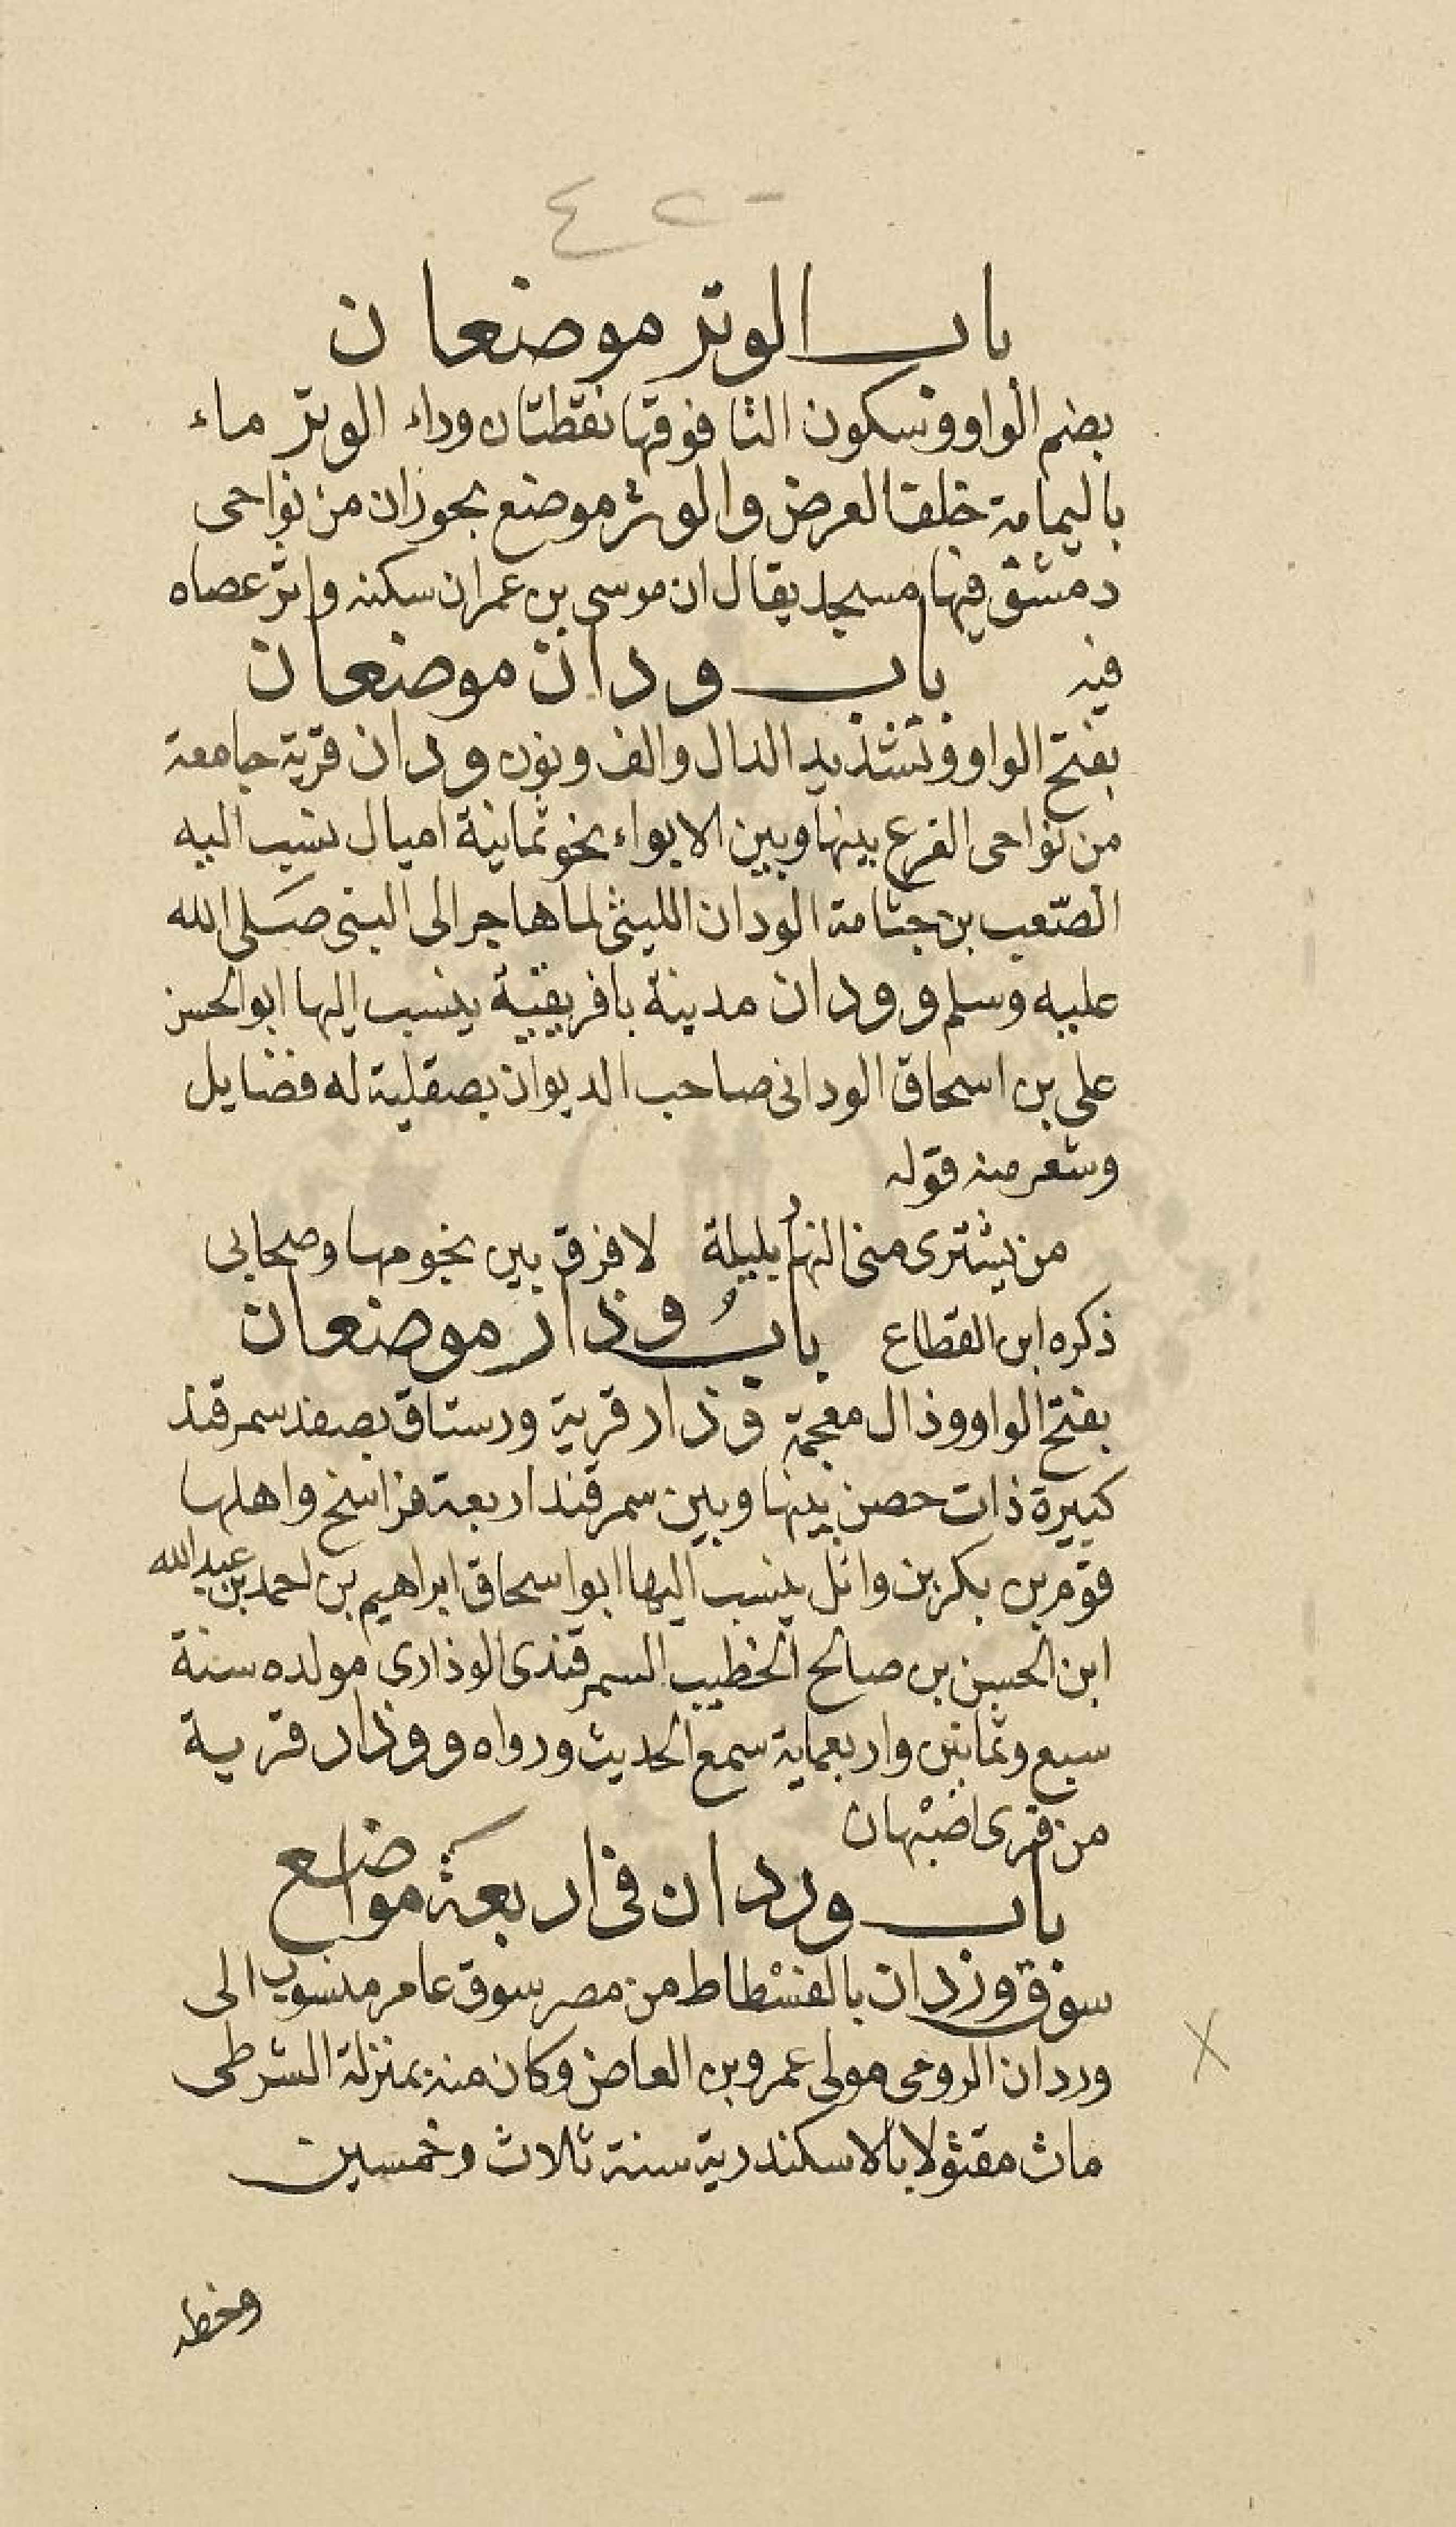 ٤٢٠
باب الوتر موضعان
بضم الواو وسكون التا فوقها نقطتان وراء الوتر ماء
باليمامة خلف العرض والوتر موضع بحوران من نواحى
دمشق فيها مسجد يقال ان موسى بن عمران سكنه واثر عصاه
فيه باب ودان موضعان
بفتح الواو وتشديد الدال والف ونون ودان قرية جامعة
من نواحى الفرع بينها وبين الابواء نحو ثمانية اميال نسب اليه
الصّعب بن جثامة الودان الليثى لما هاجر الى النبى صلى الله
عليه وسلم وودان مدينة بافريقية ينسب اليها ابو الحسن
على بن اسحاق الودانى صاحب الديوان بصقلية له فضايل
وشعر منه قوله
من يشترى منى النهار بليلة لا فرق بين نجومها وصحابى
ذكره ابن القطاع بابُ وذار موضعان
بفتح الواو وذال معجمة وذار قرية ورستاق بصغد سمرقند
كبيرة ذات حصن بينها وبين سمرقند اربعة فراسخ واهلها
قوم من بكر بن وائل ينسب اليها ابو اسحاق ابراهيم بن احمد بن عبد الله
ابن الحسين بن صالح الخطيب السمرقندى الوذارى مولده سنة
سبع وثمانين واربعماية سمع الحديث ورواه ووذار قرية
من قرى اصبْهان
باب وردان فى اربعة مواضع
سوق وردان بالفسْطاط من مصر سوق عامر منسوب الى
وردان الرومى مولى عمرو بن العاص وكان منه بمنزلة الشرطى
مات مقتولا بالاسكندرية سنة ثلاث وخمسين
وخطه